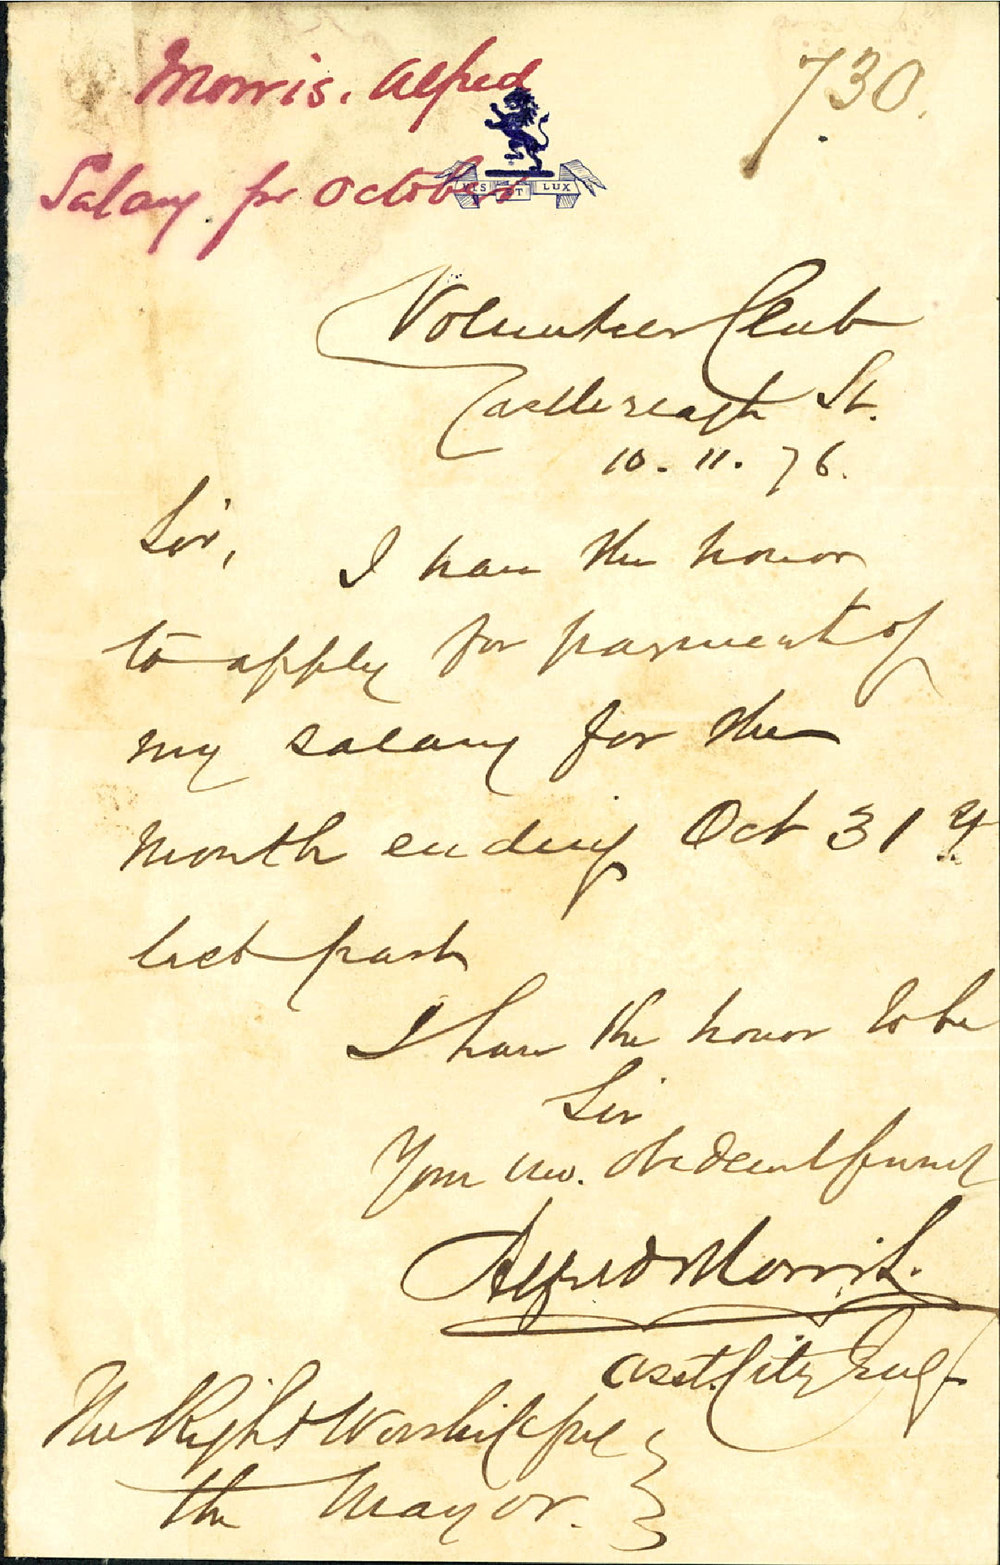 Morris. Alfred
730.
Salary for October
VIS ET LUX
Volunteer Club
Castlereagh St.
10. 11. 76.
Sir,
I have the honor
to apply for payment of
my salary for the
month ending Oct 31st
last past
I have the honor to be
Sir
Your mo. obedient servant
Alfred Morris.
Asst. City Eng
The Right Worshipful
the Mayor.